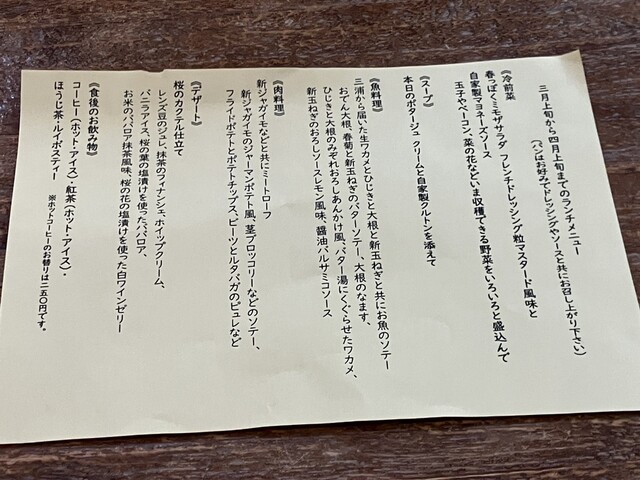 三月上旬から四月上旬までのランチメニュー
(パンはお好みでドレッシングやソースと共にお召し上がり下さい)
《冷前菜》
春っぽくミモザサラダ　フレンチドレッシング粒マスタード風味と
自家製マヨネーズソース
玉子やベーコン、菜の花などいま収穫できる野菜をいろいろと盛込んで
《スープ》
本日のポタージュ クリームと自家製クルトンを添えて
《魚料理》
三浦から届いた生ワカメとひじきと大根と新玉ねぎと共にお魚のソテー
おでん大根、春菊と新玉ねぎのバターソテー、大根のなます、
ひじきと大根のみぞれおろしあんかけ風、バター湯にくぐらせたワカメ、
新玉ねぎのおろしソースレモン風味、醤油バルサミコソース
《肉料理》
新ジャガイモなどと共にミートローフ
新ジャガイモのジャーマンポテト風、茎ブロッコリーなどのソテー、
フライドポテトとポテトチップス、ビーツとルタバガのピュレなど
《デザート》
桜のカクテル仕立て
レンズ豆のジュレ、抹茶のフィナンシェ、ホイップクリーム、
バニラアイス、桜の葉の塩漬けを使ったババロア、
お米のババロア抹茶風味、桜の花の塩漬けを使った白ワインゼリー
《食後のお飲み物》
コーヒー(ホット・アイス)・紅茶(ホット・アイス)・
ほうじ茶・ルイボスティー　※ホットコーヒーのお替りは二五〇円です。